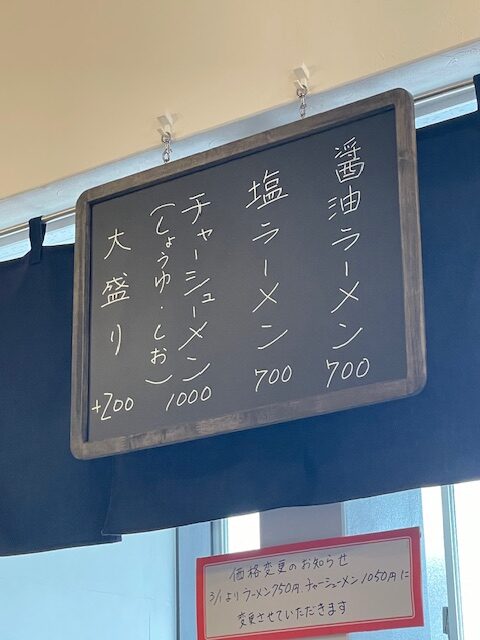 醤油ラーメン
700
塩ラーメン
700
チャーシューメン
(しょうゆ・しお)
1000
大盛り
+200
価格変更のお知らせ
3/1よりラーメン750円、チャーシューメン1050円に
変更させていただきます